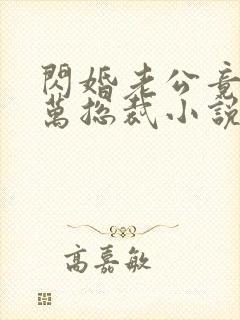 閃婚老公竟
萬總裁小説
高嘉敏